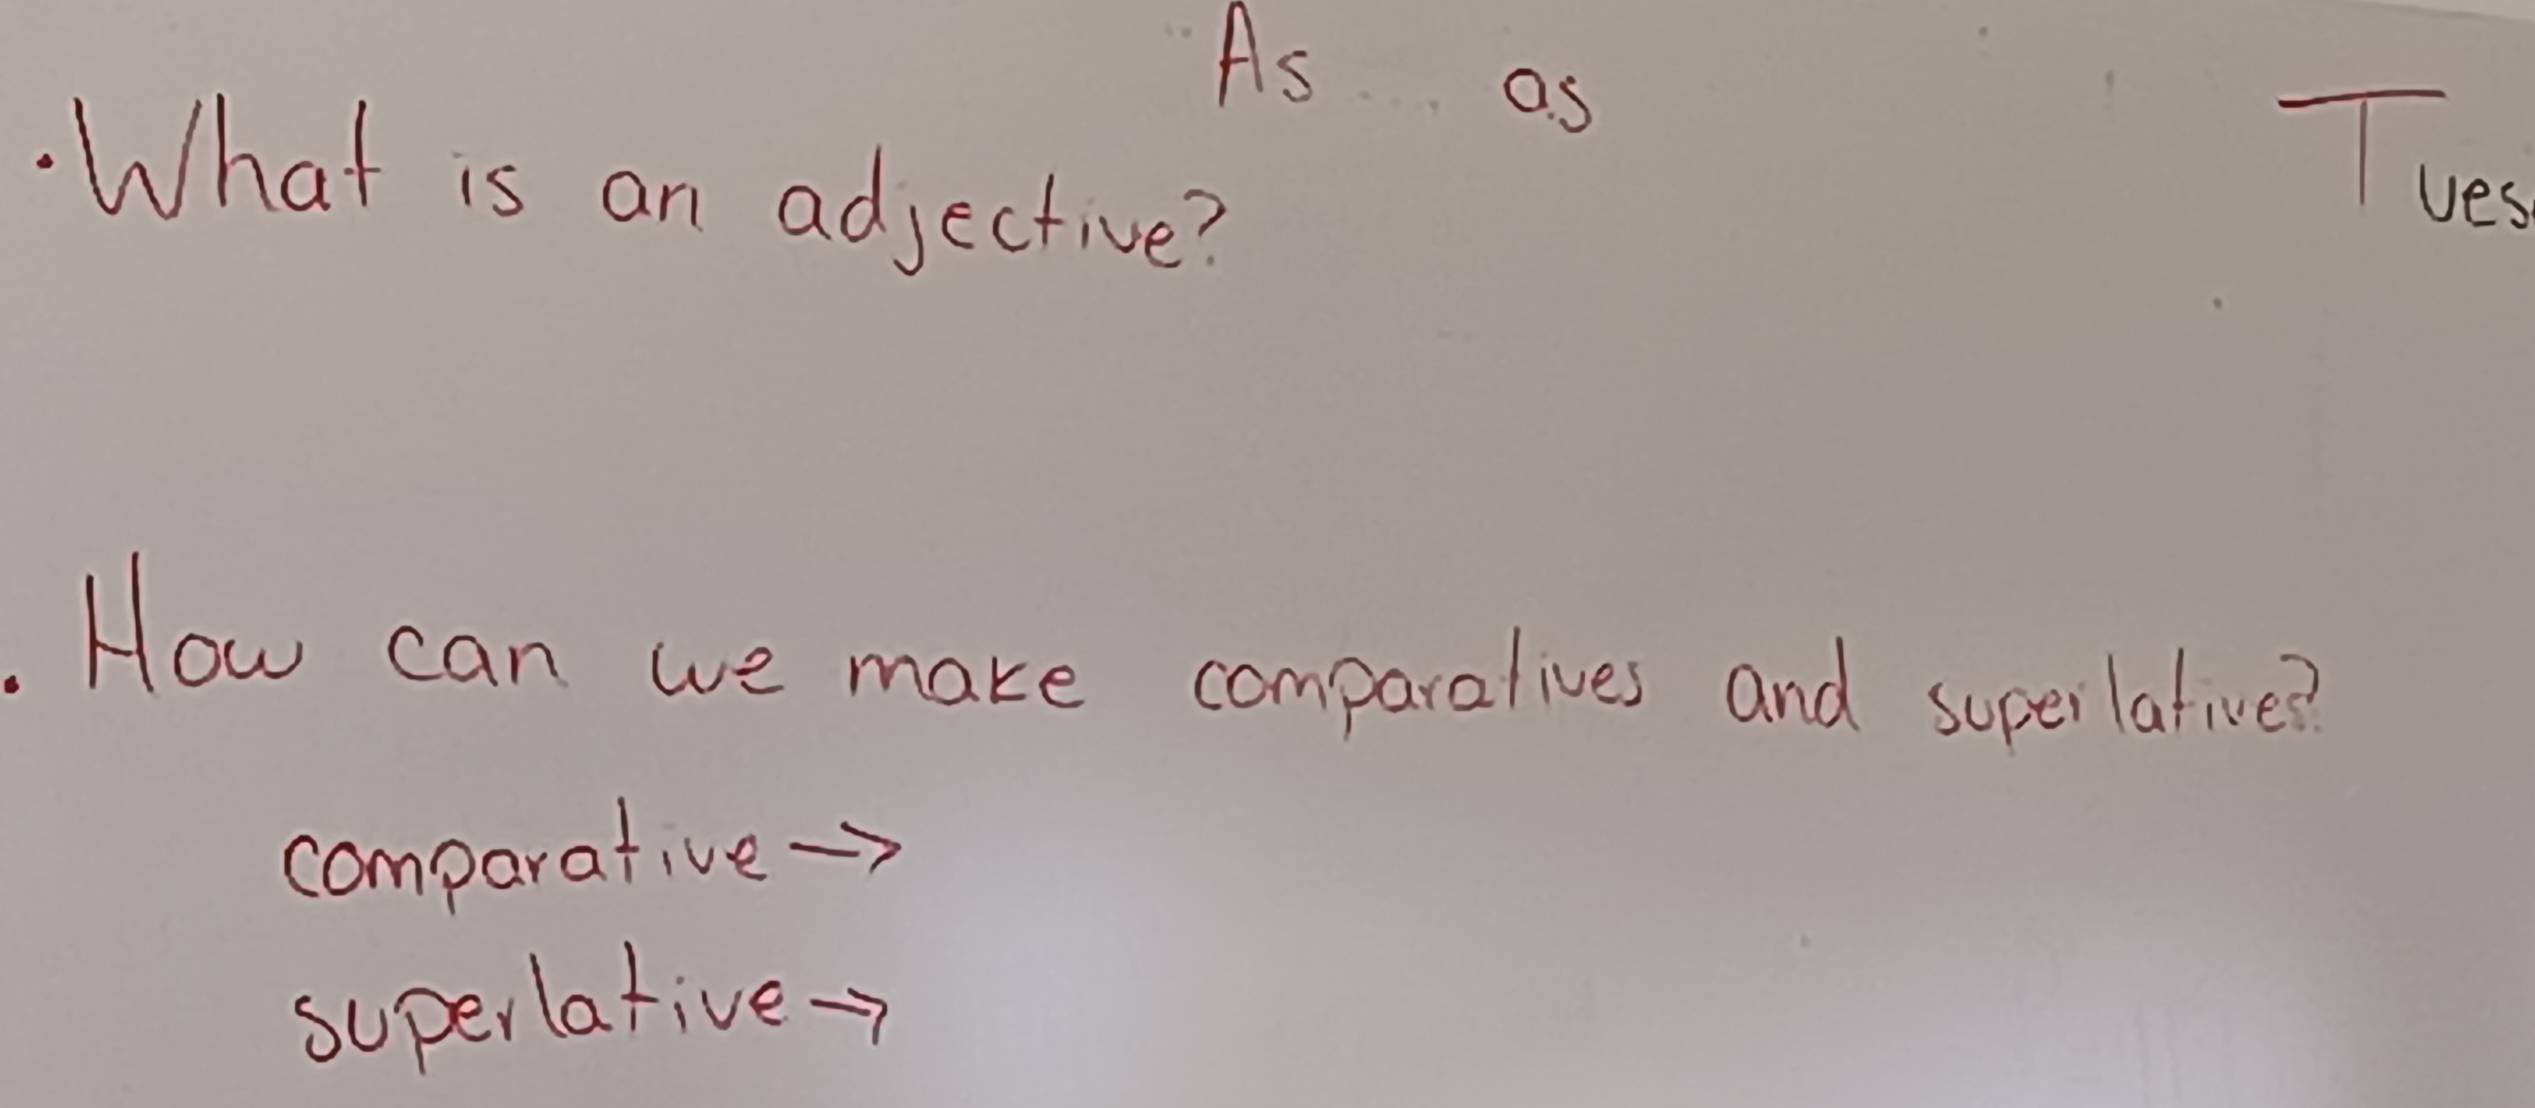 As ... as
Tues
· What is an adjective?
· How can we make comparatives and superlatives?
comparative →
superlative →